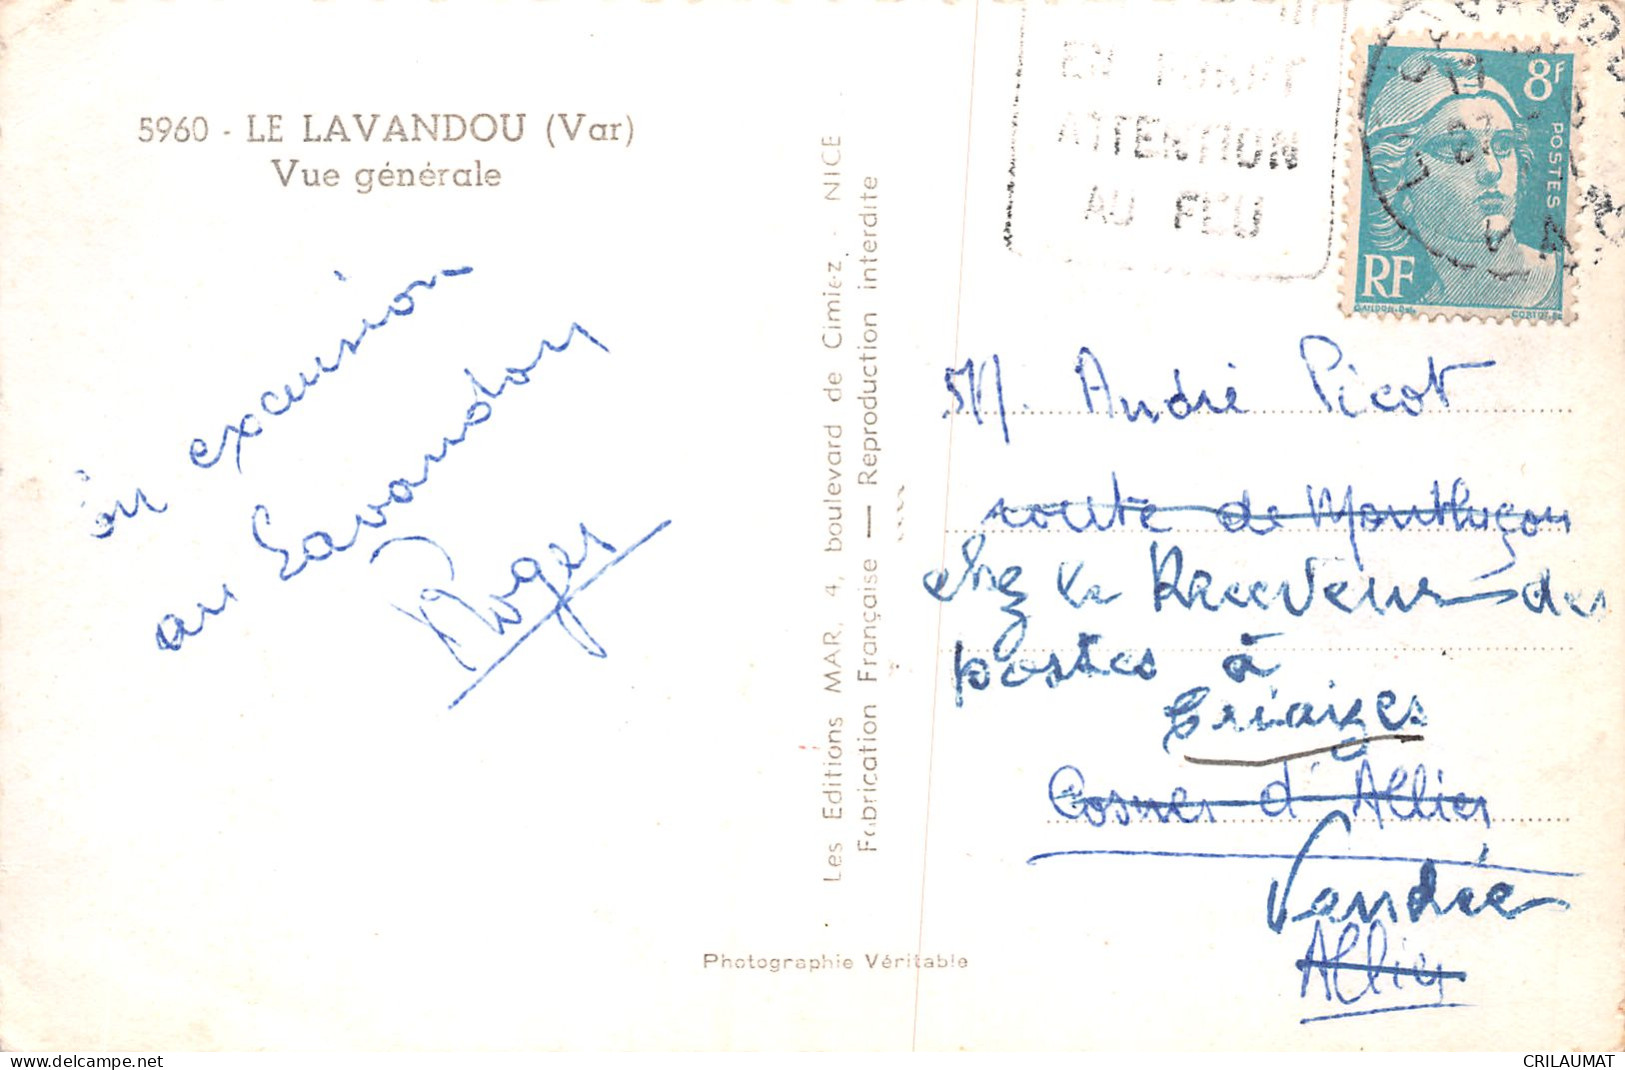 5960 - LE LAVANDOU (Var)
Vue générale
en excursion
au Lavandou
Roger
Les Editions MAR, 4, boulevard de Cimiez - NICE
Fabrication Française — Reproduction interdite
Photographie Véritable
EN FORET
ATTENTION
AU FEU
8F
POSTES
RF
GANDON-Del.
CORTOT-Sc
M. André Picot
route de Montluçon
chez le Receveur des
postes à
Triaizes
Cosnes d'Allier
Vendée
Allier
delcampe.net
CRILAUMAT